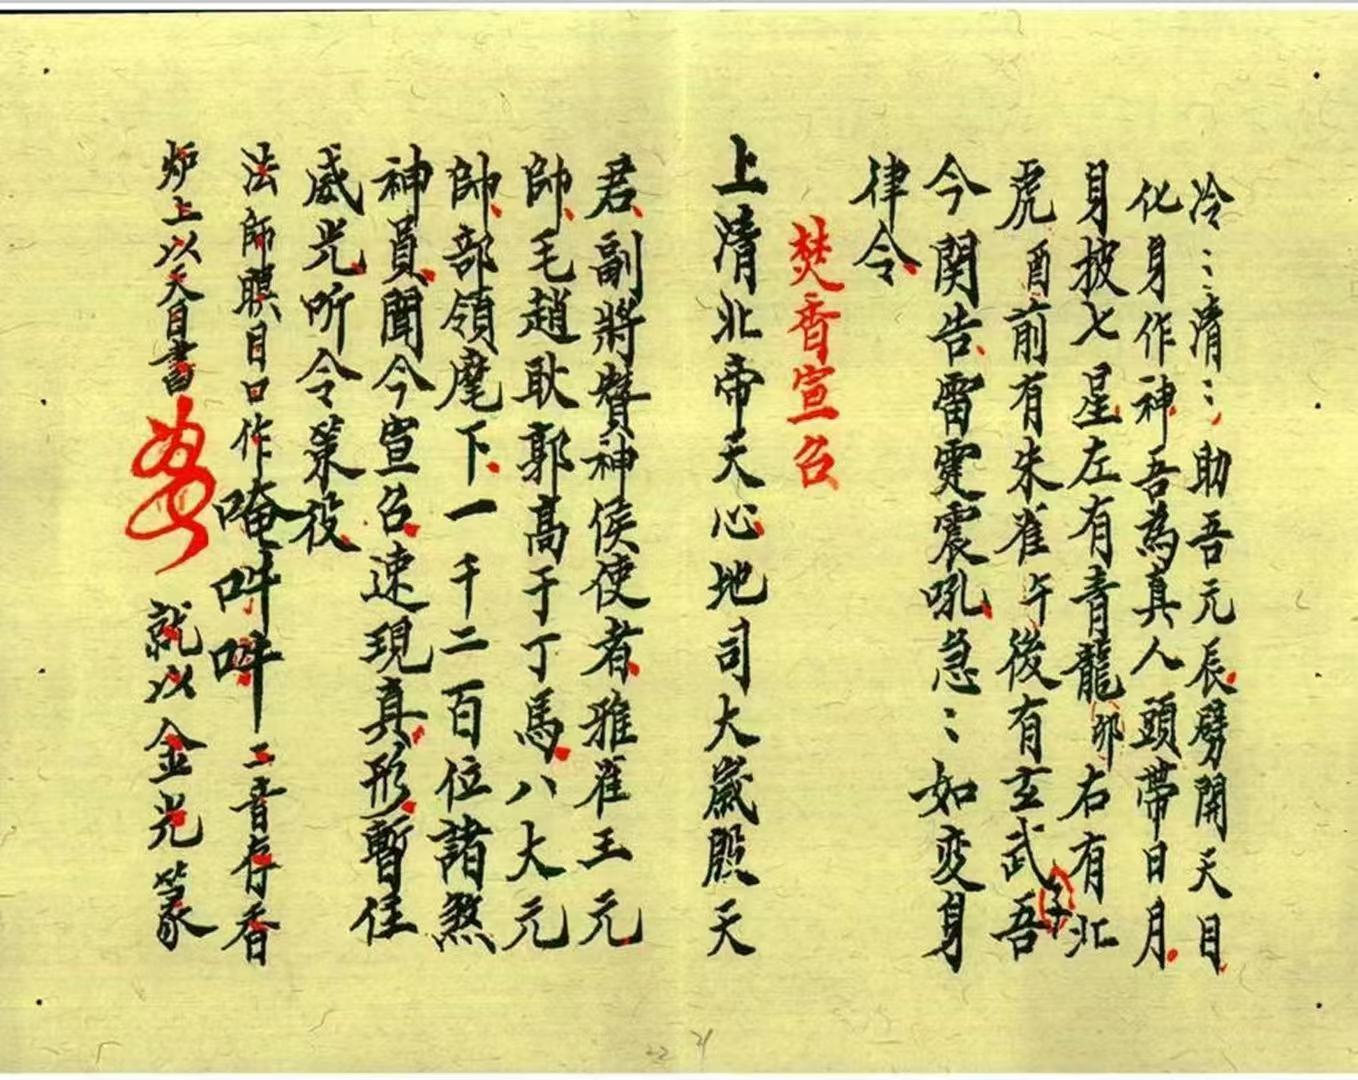 冷〻清〻助吾元辰劈開天目
化身作神吾為真人頭帶日月
身披七星左有青龍卯右有北
虎酉前有朱雀午後有玄武子吾
今関告雷霆震吼急〻如变身
律令
焚香宣召
上清北帝天心地司大歲殿天
君副將賛神侯使者雅雀王元
帥毛趙耿郭高于丁馬八大元
帥部領麾下一千二百位諸煞
神員聞今宣召速現真形暫住
威光听令策役
法師瞑目口作唵吽吽二音存香
炉上以天目書
就以金光篆